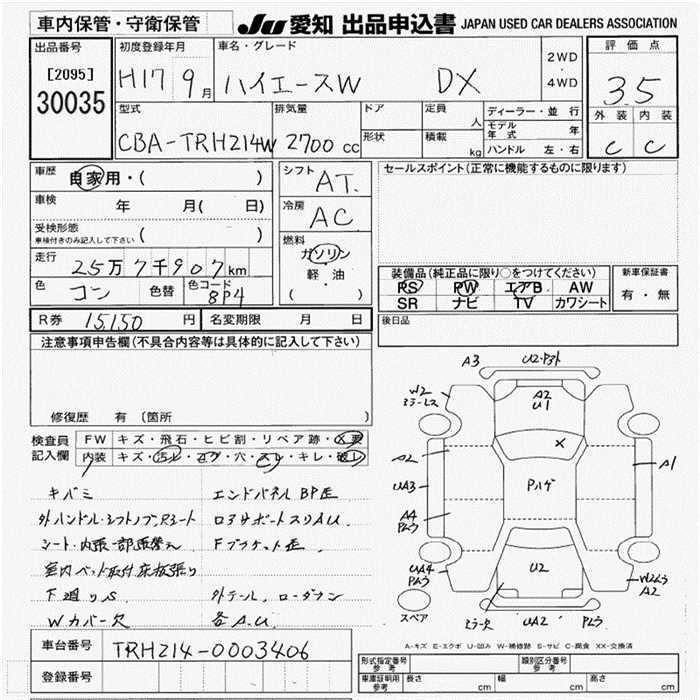 車内保管・守衛保管
JU 愛知 出品申込書 JAPAN USED CAR DEALERS ASSOCIATION
出品番号
[2095]
30035
初度登録年月
H17 9月
車名・グレード
ハイエースW DX
2WD
・
4WD
評価点
3.5
外装 内装
C C
型式
CBA-TRH214W
排気量
2700 cc
ドア
形状
定員
人
積載
kg
ディーラー・並行
モデル年式 年
ハンドル 左・右
車歴
自家用・( )
車検 年 月( 日)
受検形態
車検付きのみ記入して下さい ( )
走行
25万7千907km
色 コン 色替 色コード 8P4
シフト
AT.
冷房
AC
燃料
ガソリン
軽・油
( )
セールスポイント(正常に機能するものに限ります)
装備品(純正品に限り○をつけてください)
PS PW エアB AW
SR ナビ TV カワシート
新車保証書
有・無
R券 15,150 円 名変期限 月 日
後日品
注意事項申告欄(不具合内容等は具体的に記入して下さい)
修復歴 有 〔箇所 〕
検査員
記入欄
FW キズ・飛石・ヒビ割・リペア跡・X要
内装 キズ・汚レ・コゲ・穴・スレ・キレ・破レ
キバミ
エンドパネルBP歪
外ハンドル・シフトノブ
シート・内張一部張替え
室内ベット取付床板張り
下廻りS
Wカバー欠
外テール,
各A.U.
A3
W2
ミラーLス
A2
U1
X
A2
UA3
A4
Pムラ
Pハゲ
A1
UA4
Pムラ
U2
A2
UA2
Pムラ
スペア
A-キズ E-エクボ U-凹み W-補修跡 S-サビ C-腐食 XX-交換済
車台番号 TRH214-0003406
登録番号
形式指定番号 参考
類別区分番号 参考
車庫証明用 参考 長さ cm 幅 cm 高さ cm